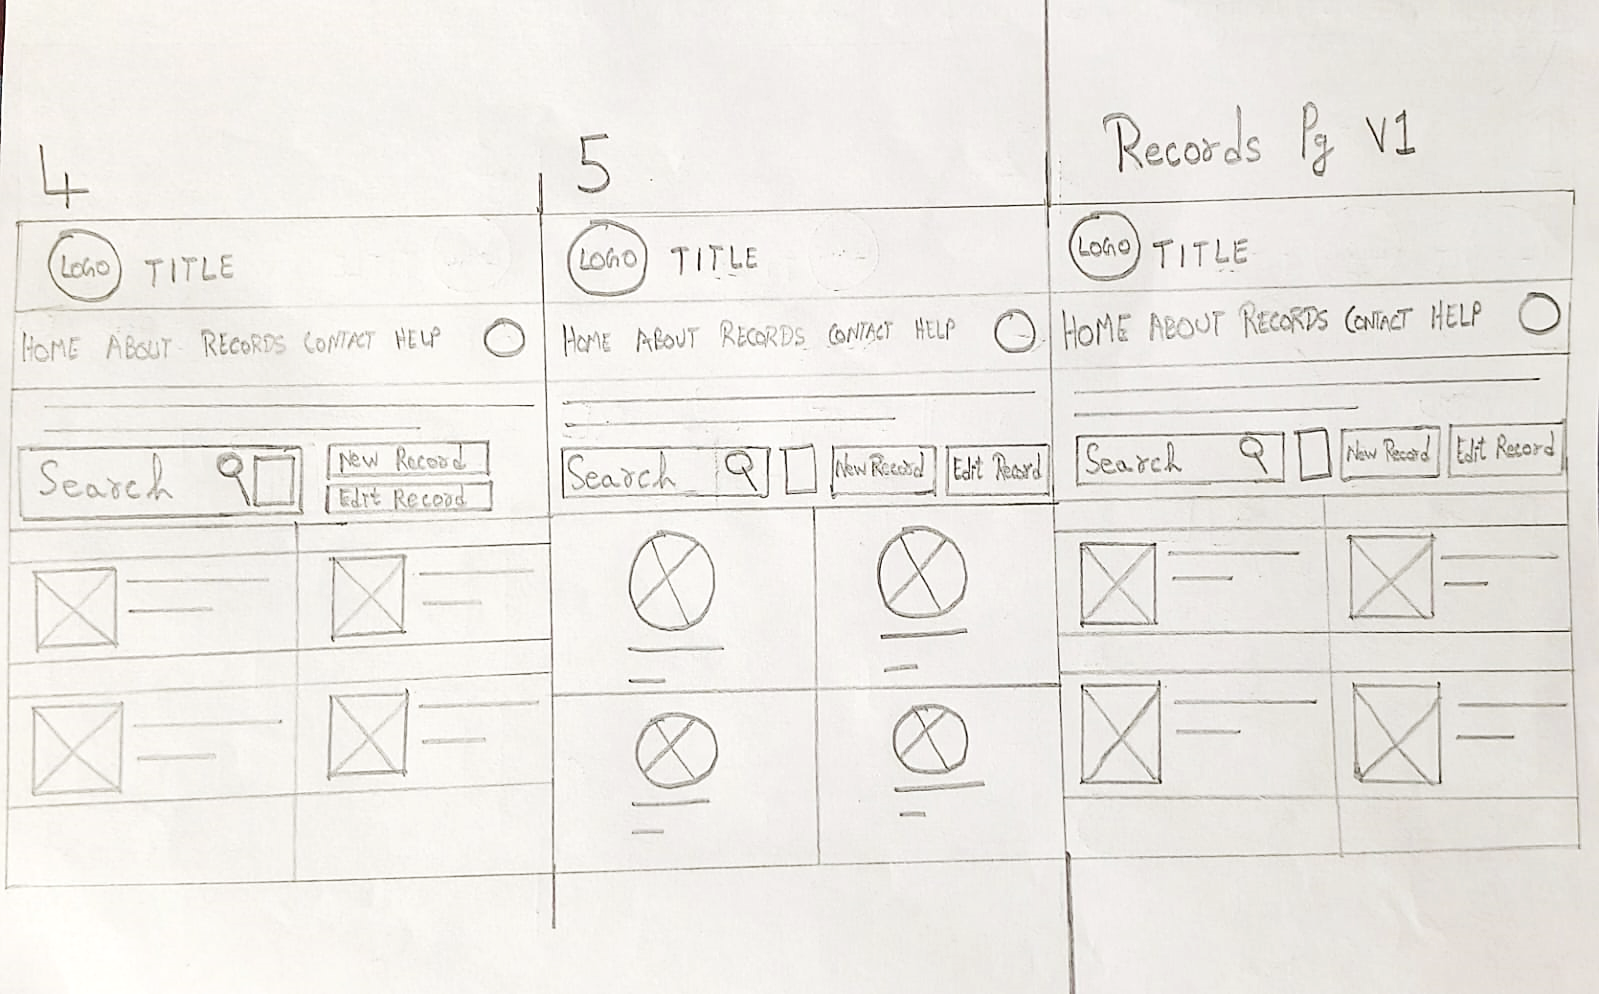 4
LOGO TITLE
HOME ABOUT RECORDS CONTACT HELP
Search
New Record
Edit Record
5
LOGO TITLE
HOME ABOUT RECORDS CONTACT HELP
Search New Record Edit Record
Records Pg V1
LOGO TITLE
HOME ABOUT RECORDS CONTACT HELP
Search New Record Edit Record